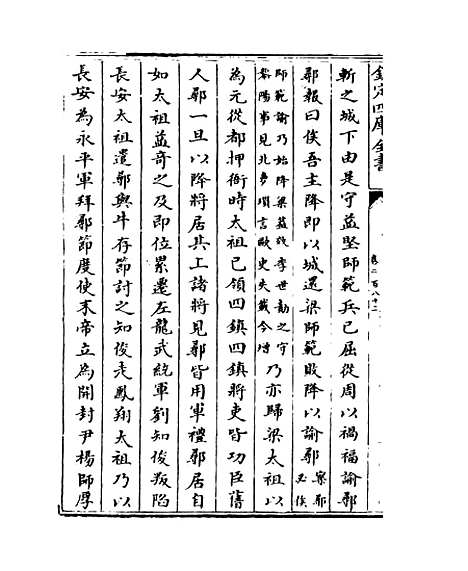 欽定四庫全書 卷二百八十二
斬之城下由是守益堅師範兵已屈從周以禍福諭鄩
鄩報曰俟吾主降即以城還梁師範敗降以諭鄩案鄩必俟
師範諭乃始降梁葢效李世勣之守黎陽事見北夢瑣言歐史失載今增乃亦歸梁太祖以
為元從都押衙時太祖已領四鎮四鎮將吏皆功臣舊
人鄩一旦以降將居其上諸將見鄩皆用軍禮鄩居自
如太祖益奇之及即位累遷左龍武統軍劉知俊叛陷
長安太祖遣鄩與牛存節討之知俊走鳳翔太祖乃以
長安為永平軍拜鄩節度使末帝立為開封尹楊師厚